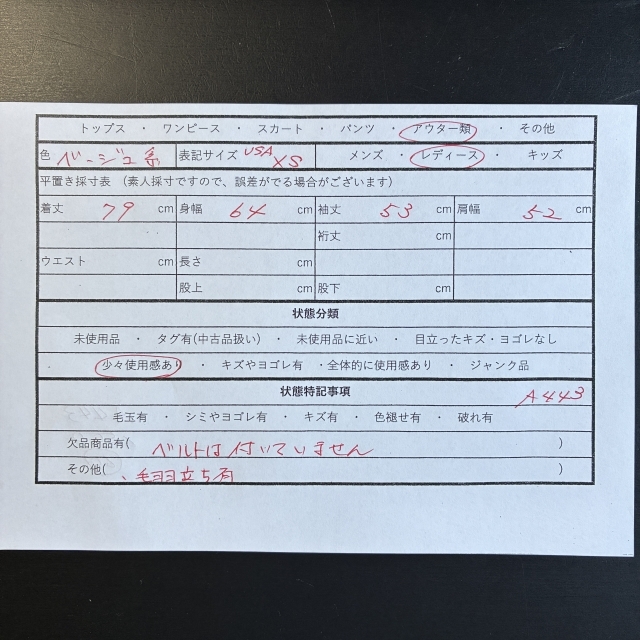 トップス ・ ワンピース ・ スカート ・ パンツ ・ アウター類 ・ その他
色 ベージュ系 表記サイズ USA XS メンズ ・ レディース ・ キッズ
平置き採寸表 (素人採寸ですので、誤差がでる場合がございます)
着丈 79 cm 身幅 64 cm 袖丈 53 cm 肩幅 52 cm
裄丈 cm
ウエスト cm 長さ cm
股上 cm 股下 cm
状態分類
未使用品 ・ タグ有(中古品扱い) ・ 未使用品に近い ・ 目立ったキズ・ヨゴレなし
少々使用感あり ・ キズやヨゴレ有 ・全体的に使用感あり ・ ジャンク品
状態特記事項 A443
毛玉有 ・ シミやヨゴレ有 ・ キズ有 ・ 色褪せ有 ・ 破れ有
欠品商品有( ベルトは付いていません )
その他( 、毛羽立ち有 )